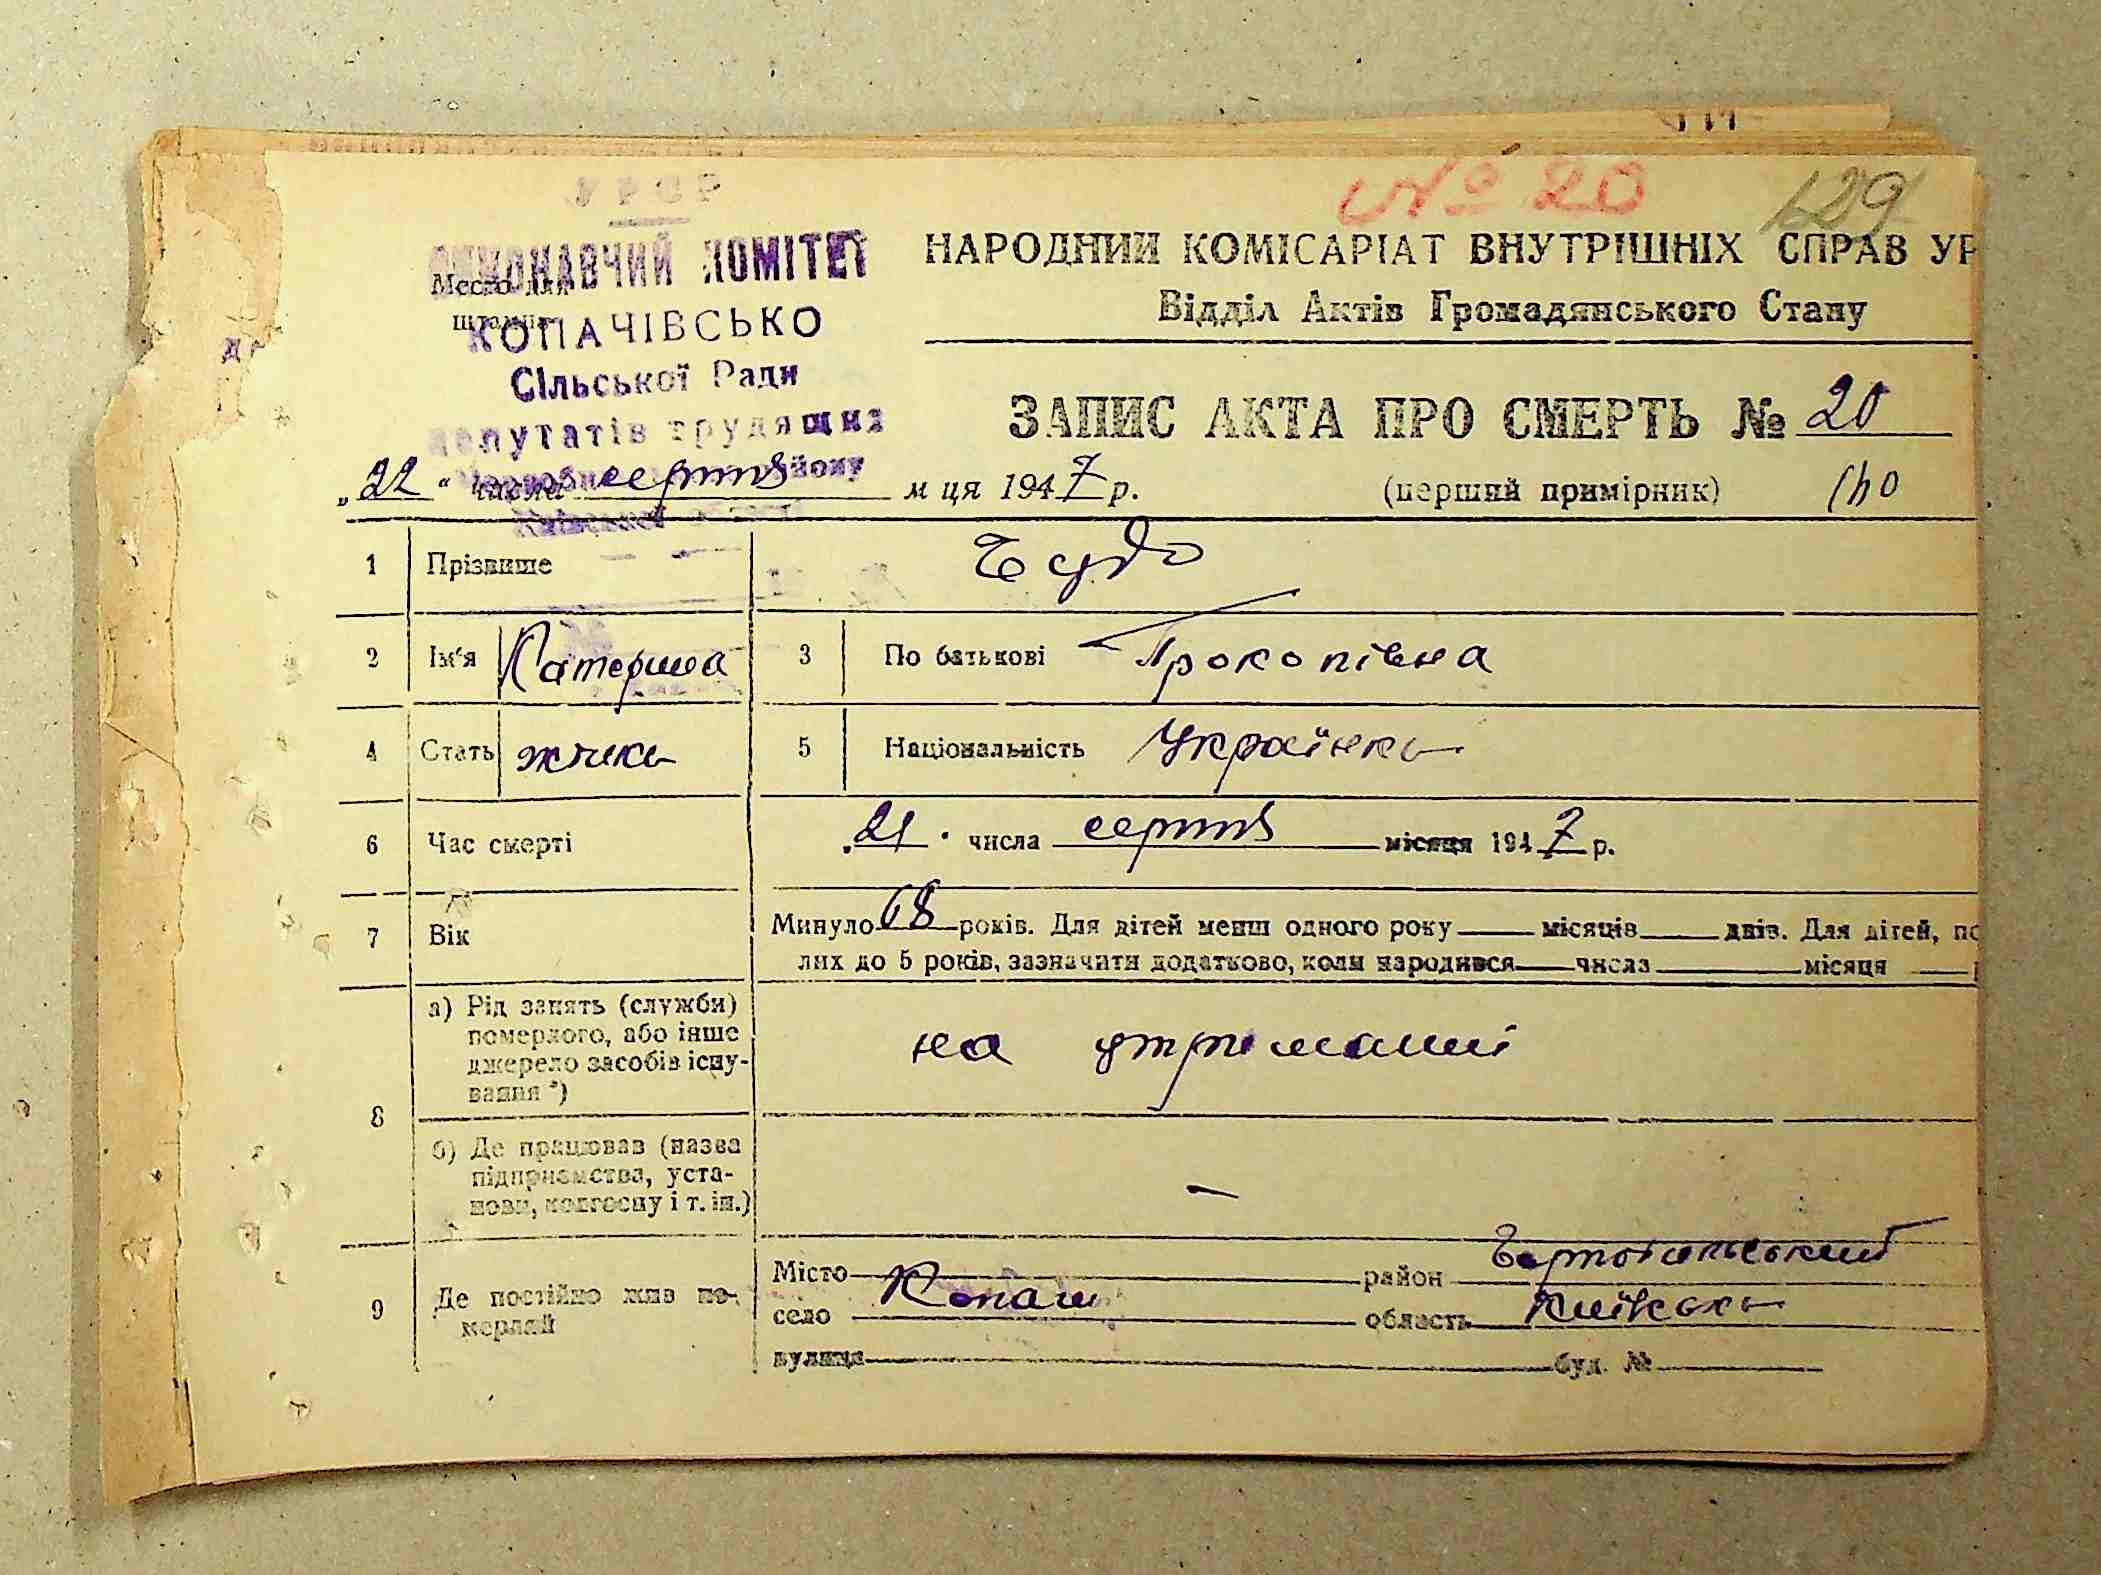 № 20 129
УРСР
ВИКОНАВЧИЙ КОМІТЕТ
НАРОДНИЙ КОМІСАРІАТ ВНУТРІШНІХ СПРАВ УР
Место для
штампа
КОПАЧІВСЬКО
Відділ Актів Громадянського Стану
Сільської Ради
депутатів трудящих
ЗАПИС АКТА ПРО СМЕРТЬ № 20
йону
„22“ числа серпня м ця 1947 р. (перший примірник)
Київської
1 Прізвище Чудо
2 Ім'я Катерина 3 По батькові Прокопівна
4 Стать жіноч 5 Національність Українка
6 Час смерті „21" числа серпня місяця 1947 р.
7 Вік Минуло 68 років. Для дітей менш одного року місяців днів. Для дітей, по
лих до 5 років, зазначити додатково, коли народився числа місяця
8 а) Рід занять (служби)
померлого, або інше
джерело засобів існу-
вання *) на утриманні
б) Де працював (назва
підприємства, уста-
нови, колгоспу і т. ін.) —
9 Де постійно жив по-
мерлий
Місто район Чорнобильський
село Копачі область Київська
вулиця буд. №